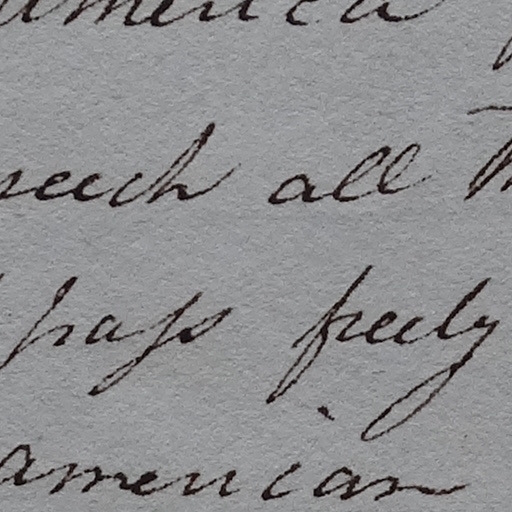 america
seech all
pass freely
american